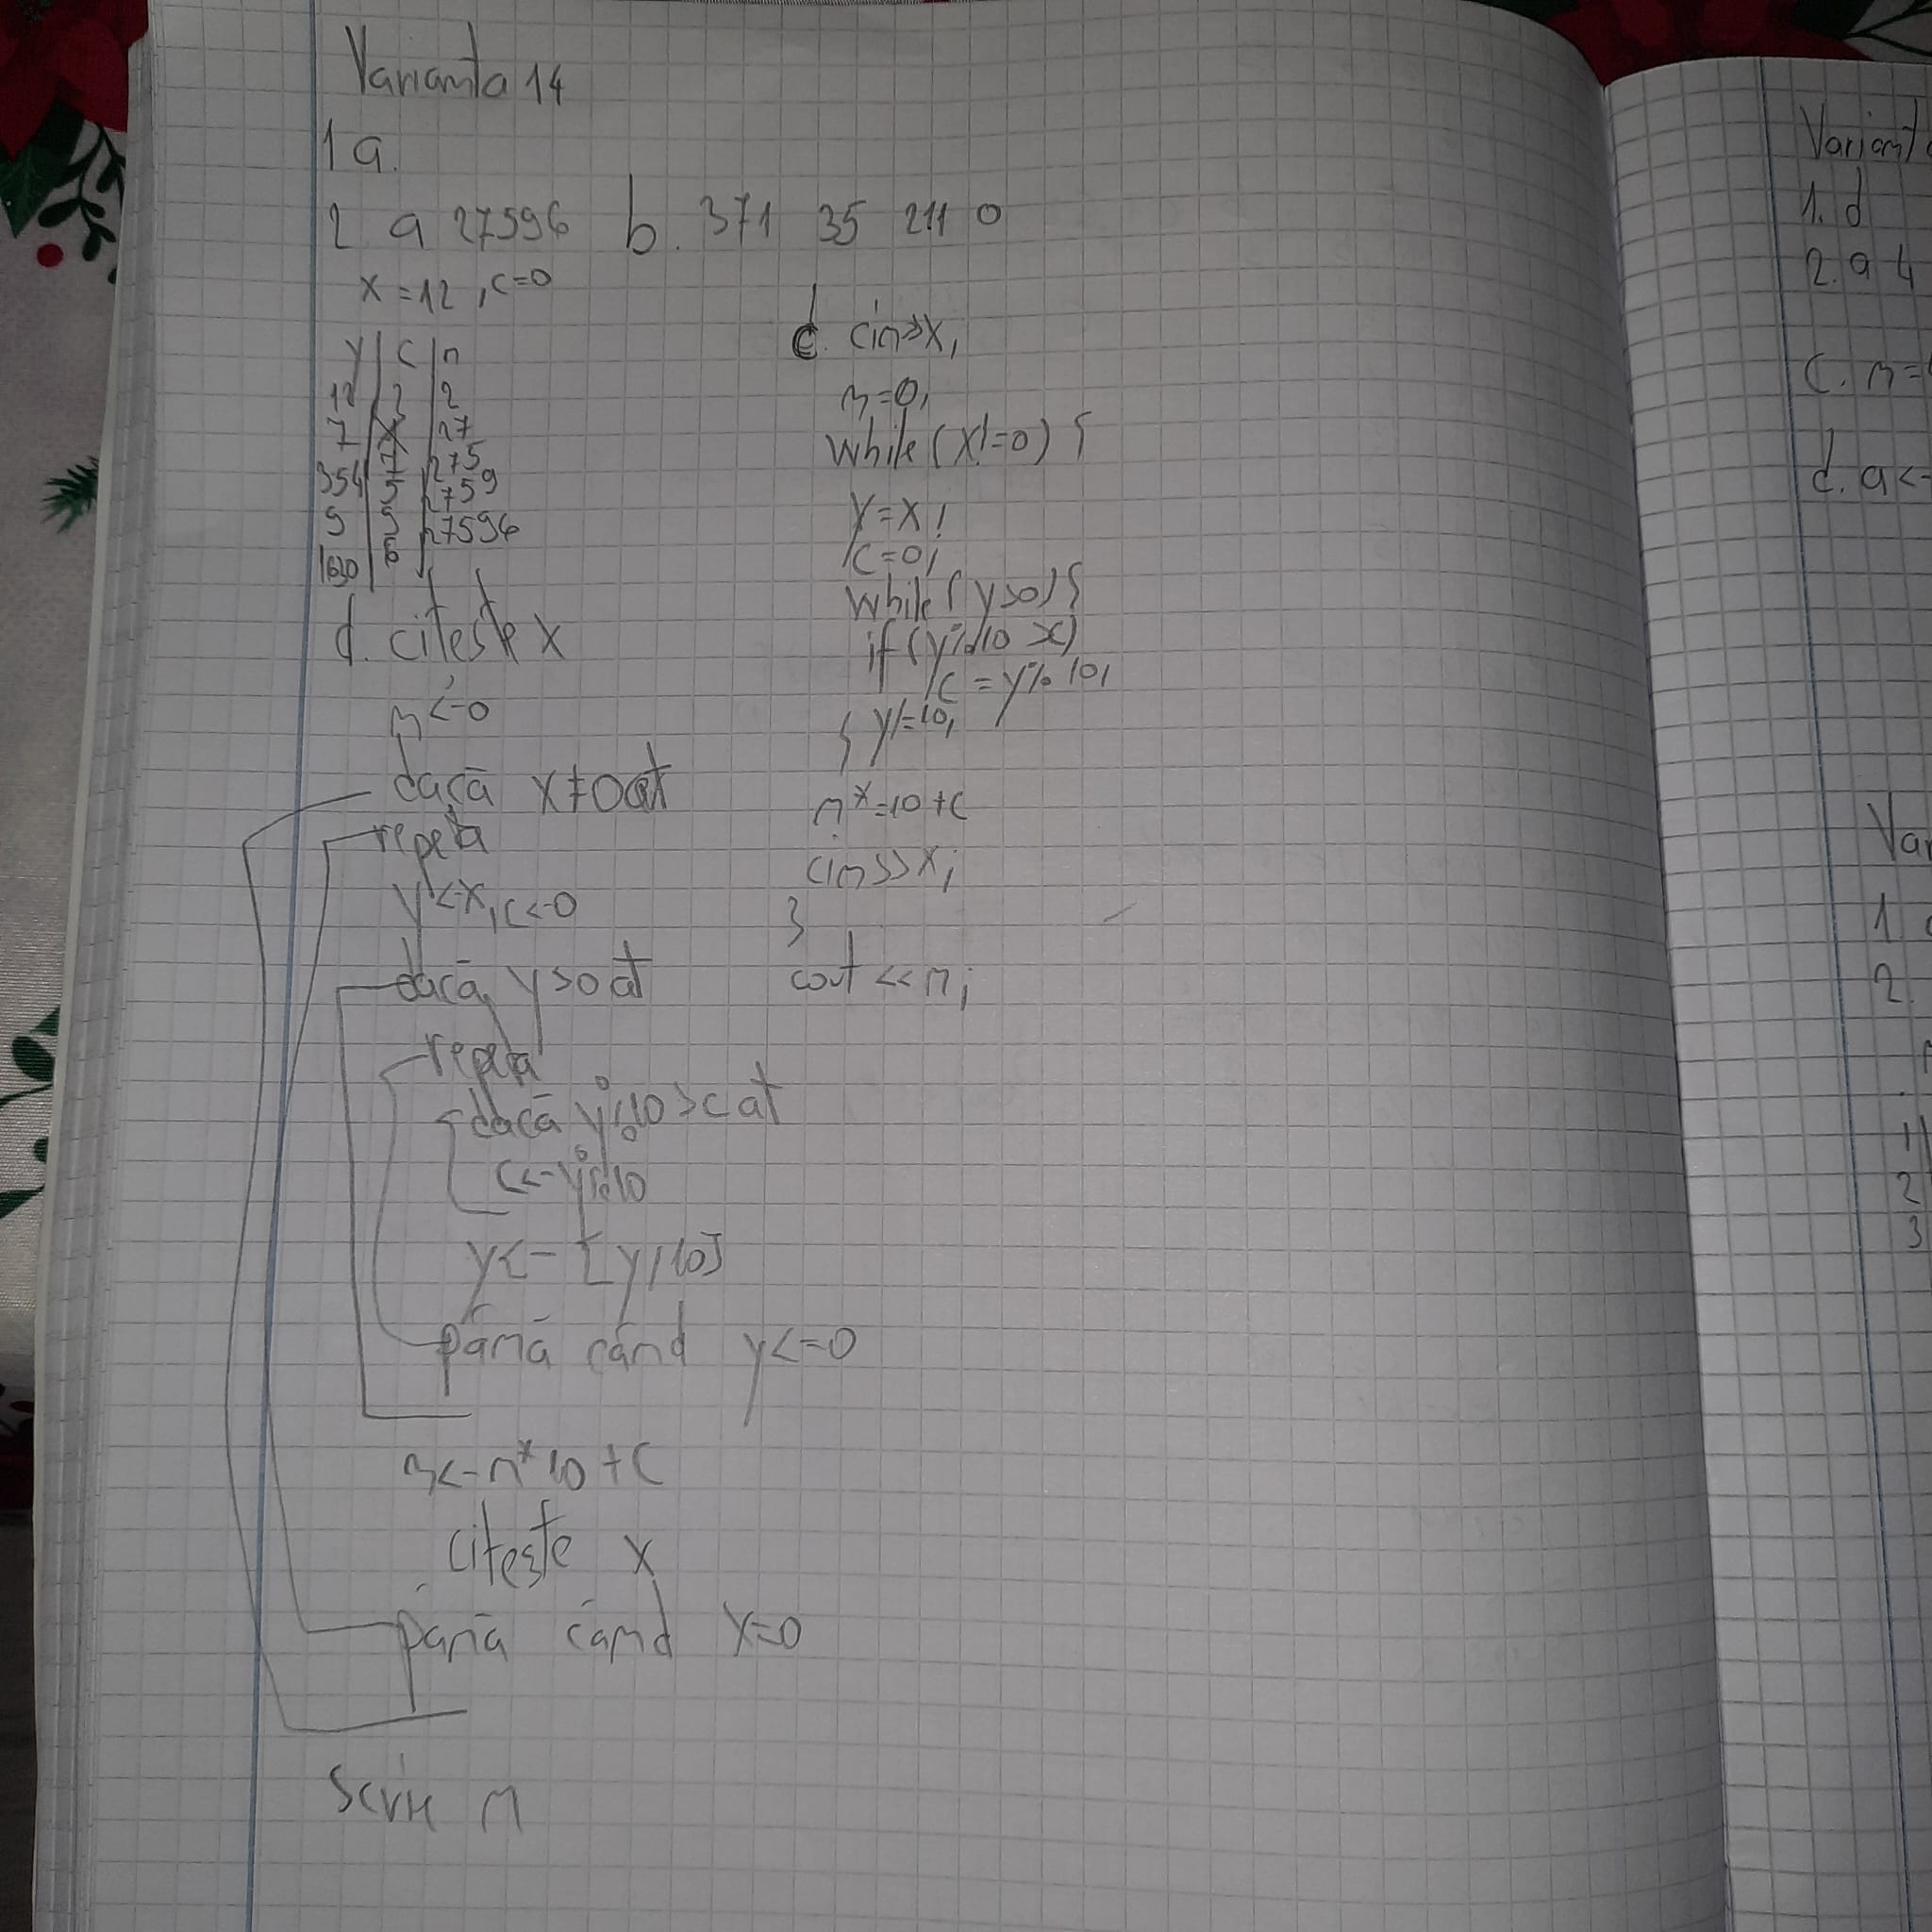 Varianta 14
1 a.
2 a 27596 b. 371 35 211 0
x = 12 , c=0
y | c | n
12 | 2 | 2
7 | 7 | 27
354 | 5 | 275
9 | 9 | 2759
1630 | 6 | 27596
d. citește x
n <- 0
dacă x≠0 at
repetă
y<-x, c<-0
dacă y>0 at
repetă
dacă y%10>c at
c<-y%10
y<- [y/10]
până când y<=0
n<-n*10+c
citește x
până când x=0
scrie n
c. cin>>x;
n=0;
while(x!=0) {
y=x;
c=0;
while(y>0){
if(y%10>c)
c=y%10;
} y/=10;
n*=10+c
cin>>x;
}
cout<<n;
Variant
1. d
2. a 4
c. n=
d. a<-
Var
1
2.
1
2
3